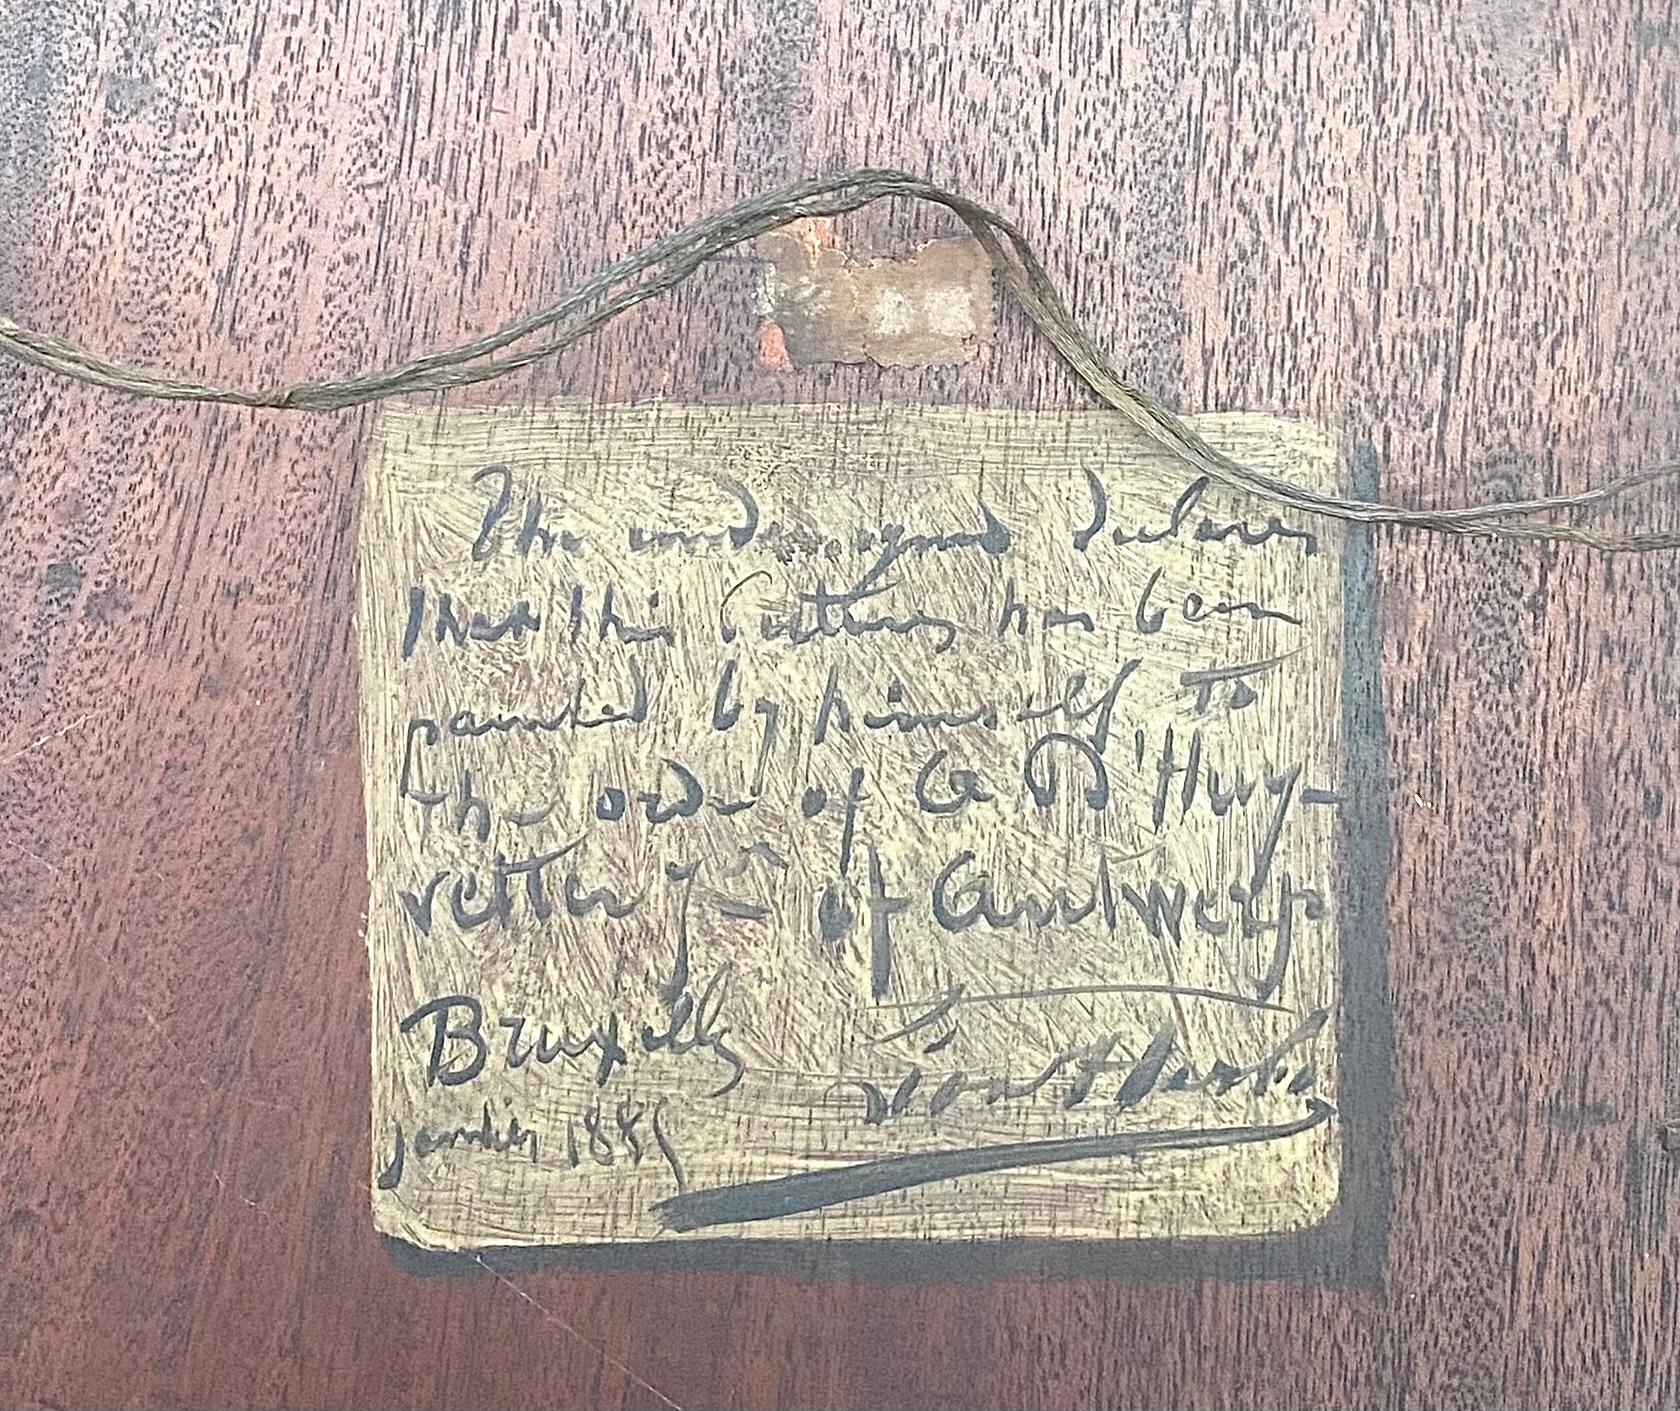 The undersigned declares
that this Picture has been
painted by himself To
the order of G D'Huy-
vetter jr of Antwerp
Bruxelles
janvier 1885